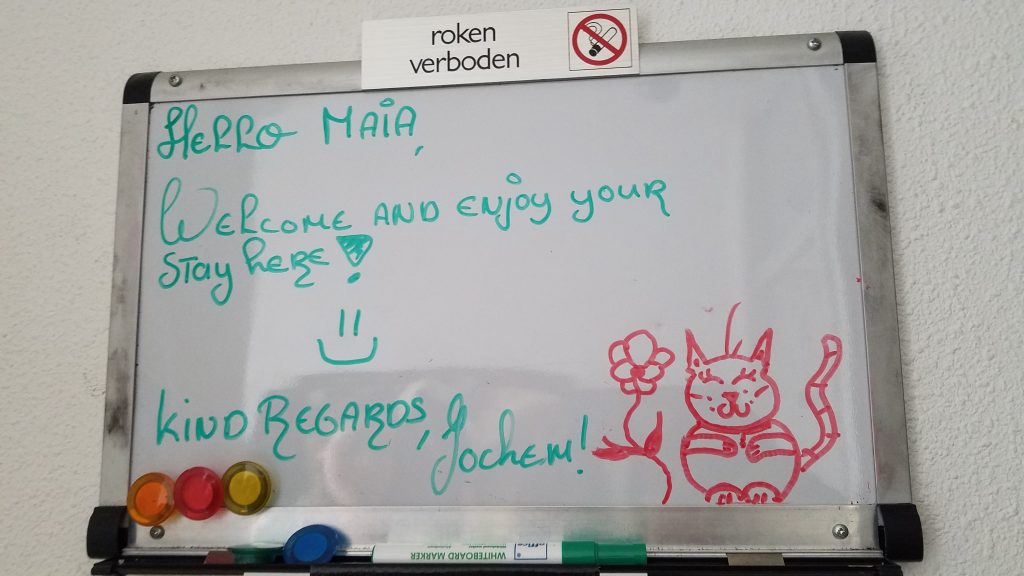 roken
verboden
Hello Maia,
Welcome and enjoy your
stay here!
Kind Regards, Jochem!
WHITEBOARD MARKER
office